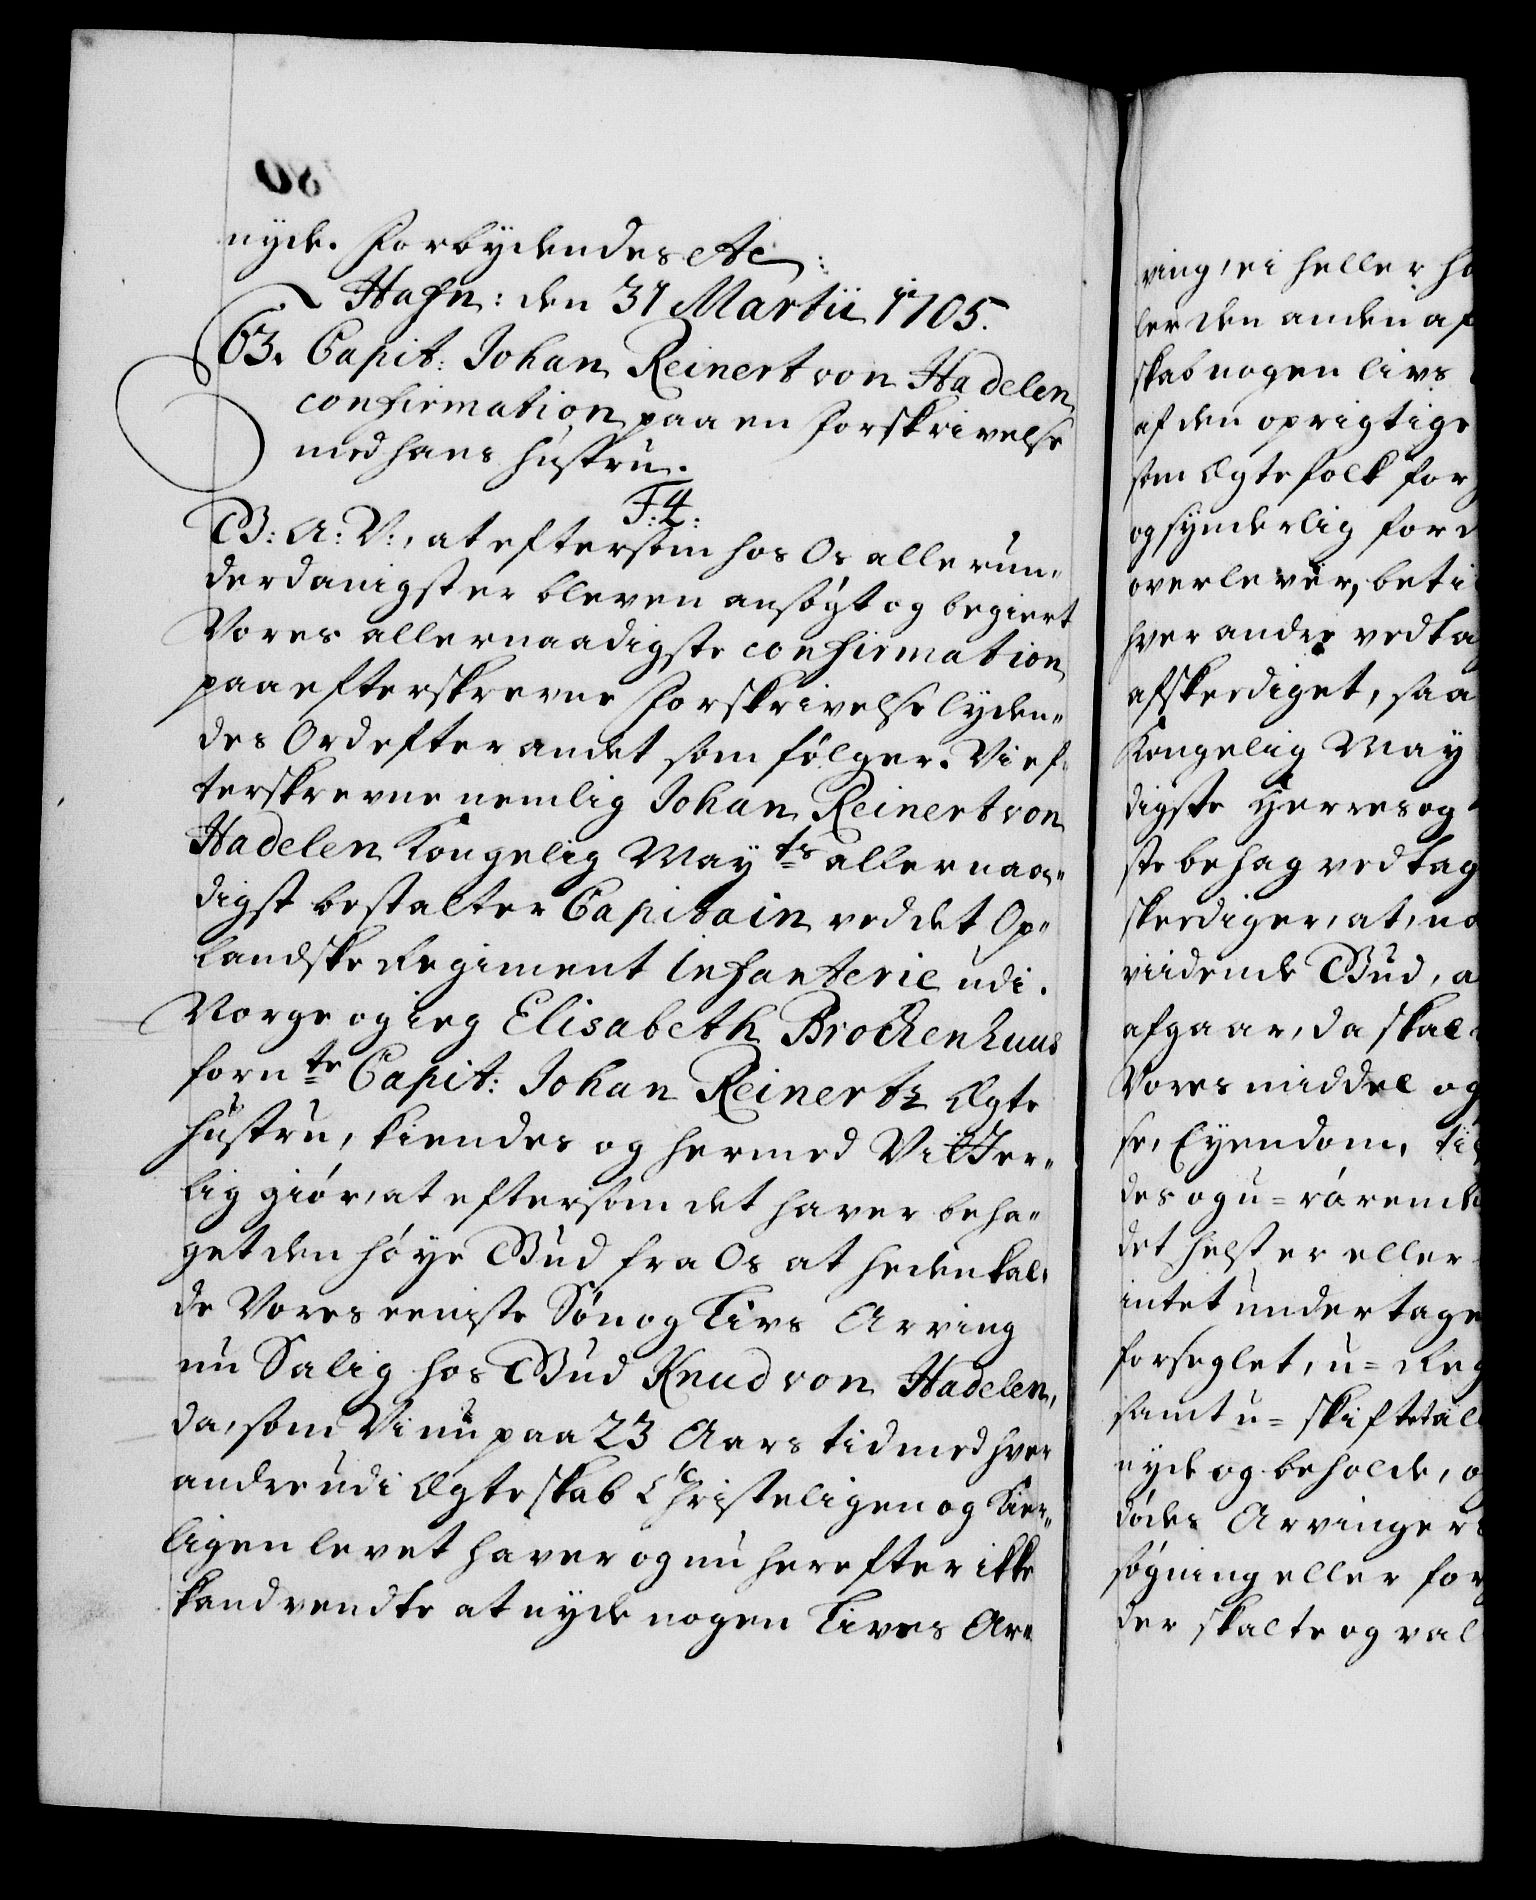 nyde. Forbydendes etc:
Hafn: den 31 Martii 1705.
63. Capit: Johan Reinert von Hadelen
confirmation paa en Forskrivelse
med hans hustru.
F: 4:
G: A: V:, at eftersom hos Os allerun-
derdanigst er bleven ansøgt og begiert
Vores allernaadigste confirmation
paa efterskrevne Forskrivelse lyden-
des Ord efter andet som følger. Vi ef-
terskrevne nemlig Johan Reinert von
Hadelen Kongelig May ts allernaa-
digst bestalter Capitain ved det Op-
landske Regiment Infanterie udi
Norge og ieg Elisabeth Brockenhuus
forn te Capit: Johan Reinertz Egte
hustru, kiendes og hermed Vitter-
lig giør, at eftersom det haver beha-
get den høye Gud fra Os at hedenkal-
de Vores eeniste Søn og Livs Arving
nu Salig hos Gud Knud von Hadelen,
da, som Vi nu paa 23 Aars tid med hver
andre udi Egteskab Christeligen og Kier-
ligen levet haver og nu herefter ikke
kand vendte at nyde nogen Lives Ar-
ving, ei heller ha
ler den anden af
skab nogen livs
af den oprigtige
som Egtefolk for
og synderlig for d
overlever, beti
hver andre vedta
afskediget, saa
Kongelig May
digste Herres og
ste behag vedtag
skediger, at, na
raadende Gud, a
afgaar, da skal
Vores middel og
se, Eyendom, til
des og u-rørende
det helst er eller
intet undertage
forseglet, u-Reg
samt u-skiftet al
nyde og beholde, o
dødes Arvinger
søgning eller for
der skalte og val